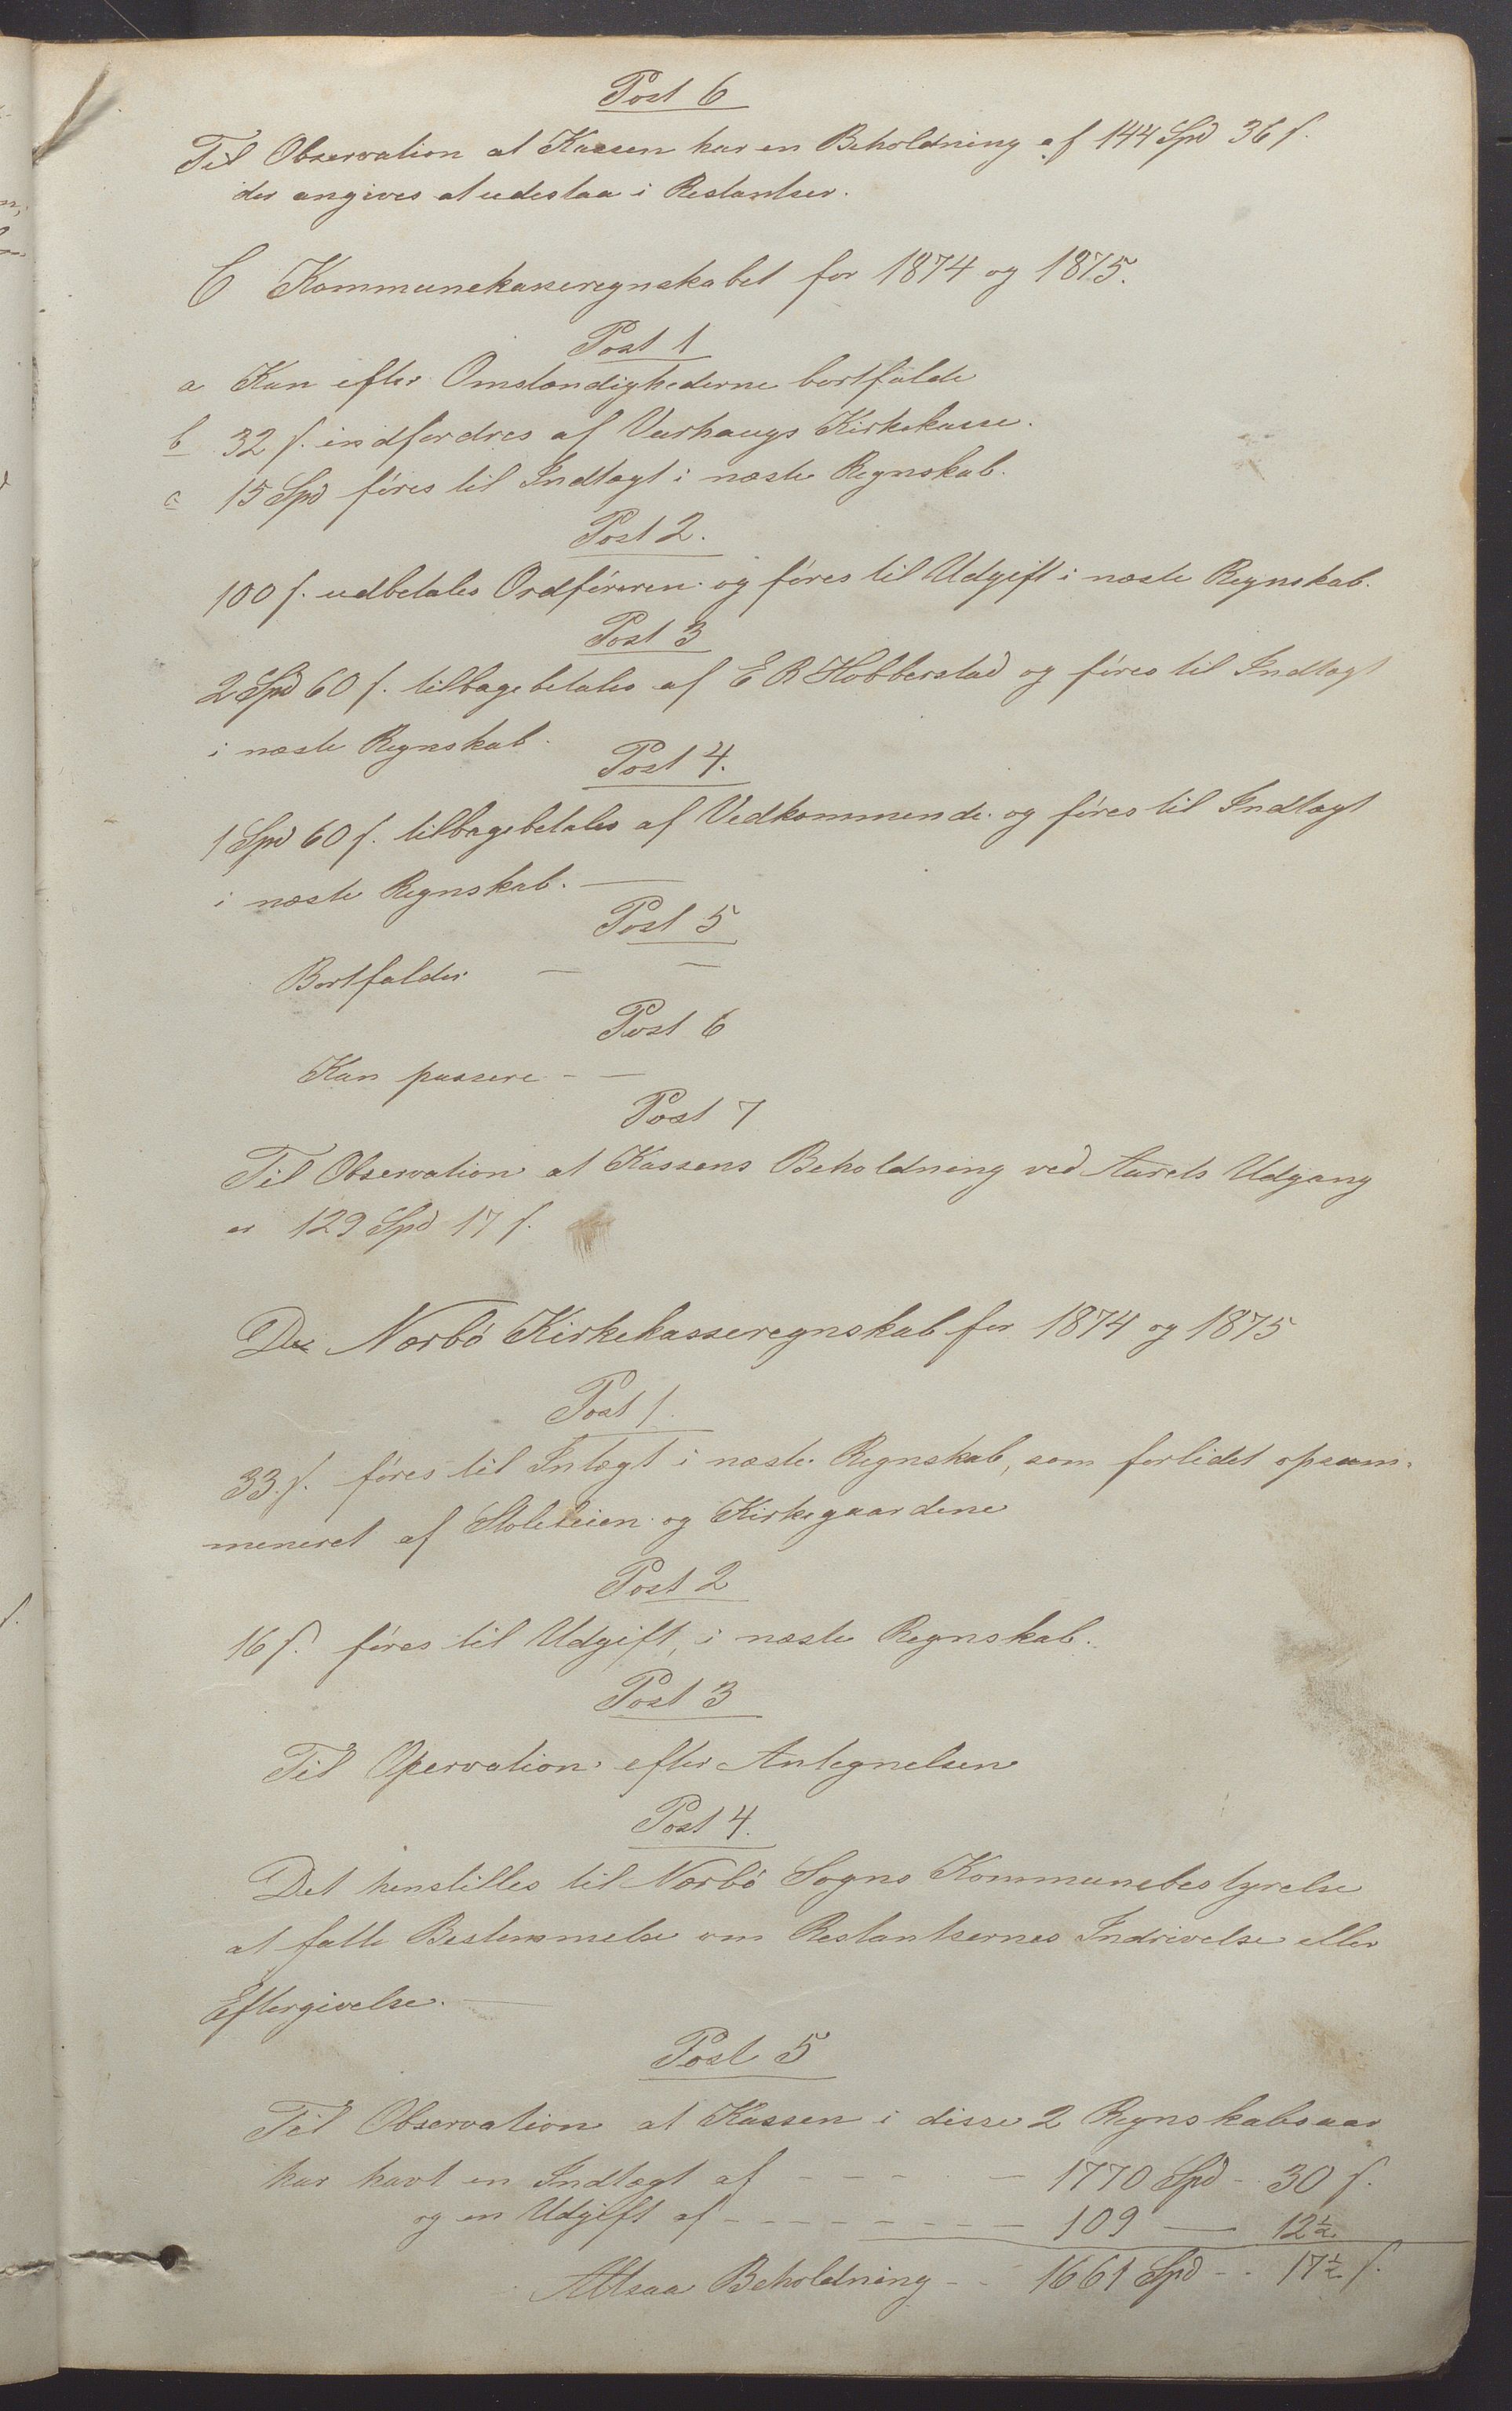 Post 6
Til Observation at Kassen har en Beholdning af 144 Spd 36 s.
der angives at udestaa i Restantser.
C Kommunekasseregnskabet for 1874 og 1875.
Post 1
a Kan efter Omstændighederne bortfalde
b 32 s. indfordres af Varhaugs Kirkekasse.
c 15 Spd föres til Indtægt i næste Regnskab.
Post 2.
100 s. udbetales Ordföreren og föres til Udgift i næste Regnskab.
Post 3
2 Spd 60 s. tilbagebetales af E R Hobberstad og föres til Indtægt
i næste Regnskab.
Post 4.
1 Spd 60 s. tilbagebetales af Vedkommende og föres til Indtægt
i næste Regnskab. —
Post 5
Bortfalder — —
Post 6
Kan passere - —
Post 7
Til Observation at Kassens Beholdning ved Aarets Udgang
er 129 Spd 17 s.
Nærbö Kirkekasseregnskab for 1874 og 1875
Post 1.
33 s. föres til Intægt i næste Regnskab, som forlidet opsum-
meneret af Stoleleien og Kirkegaardene
Post 2
16 s. föres til Udgift, i næste Regnskab.
Post 3
Til Opervation efter Antegnelsen
Post 4.
Det henstilles til Nærbö Sogns Kommunebestyrelse
at fatte Bestemmelse om Restantsernes Indrivelse eller
Eftergivelse. —
Post 5
Til Observation at Kassen i disse 2 Regnskabsaar
har havt en Indtægt af - - - - - 1770 Spd - 30 s.
og en Udgift af - - - - - - - - 109 — 12½
Altsaa Beholdning - - 1661 Spd - - 17½ s.